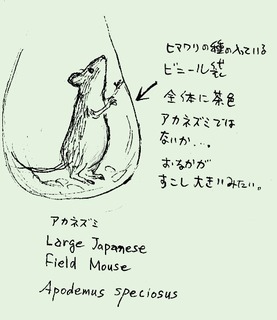 ヒマワリの種の入っている
ビニール袋
全体に茶色
アカネズミでは
ないか…。
おなかが
すこし大きいみたい。
アカネズミ
Large Japanese
Field Mouse
Apodemus speciosus